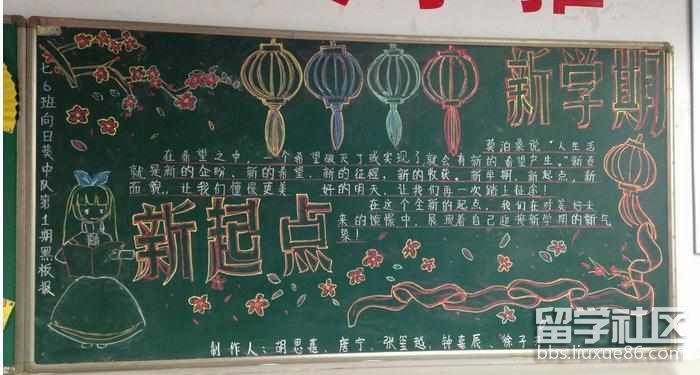 新学期
七6班向日葵中队第1期黑板报
莫泊桑说"人生活
在希望之中,一个希望破灭了或实现了就会有新的希望产生。"新意
就是新的企盼、新的希望、新的征程,新的收获。新学期,新起点,新
面貌,让我们憧憬更美好的明天,让我们再一次踏上征途!
在这个全新的起点,我们在对美好未
来的憧憬中,展现着自己迎接新学期的新气
象!
新起点
制作人:胡思嘉、唐宁、张玺越、钟嘉辰、徐子
留学社区
bbs.liuxue86.com